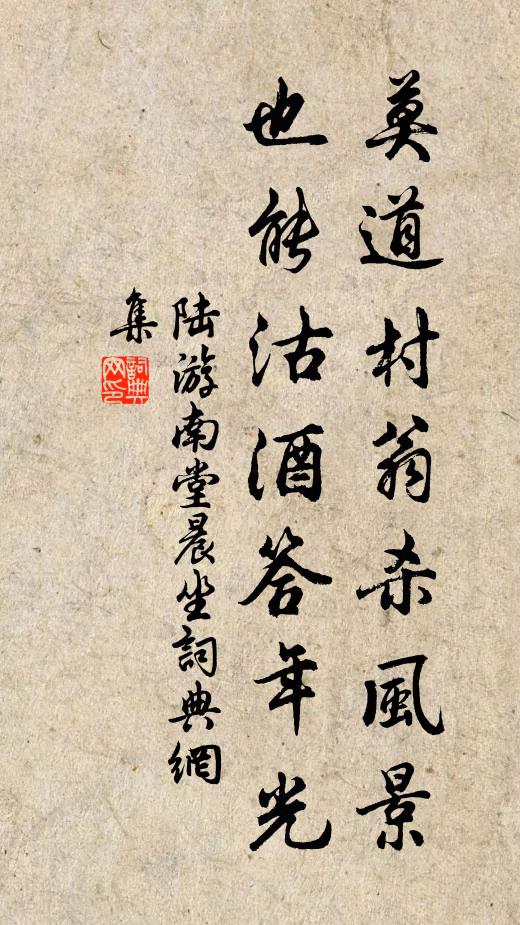 莫道村翁杀風景
也能沽酒答年光
陆游南堂晨坐詞典網
集
詞典
网印